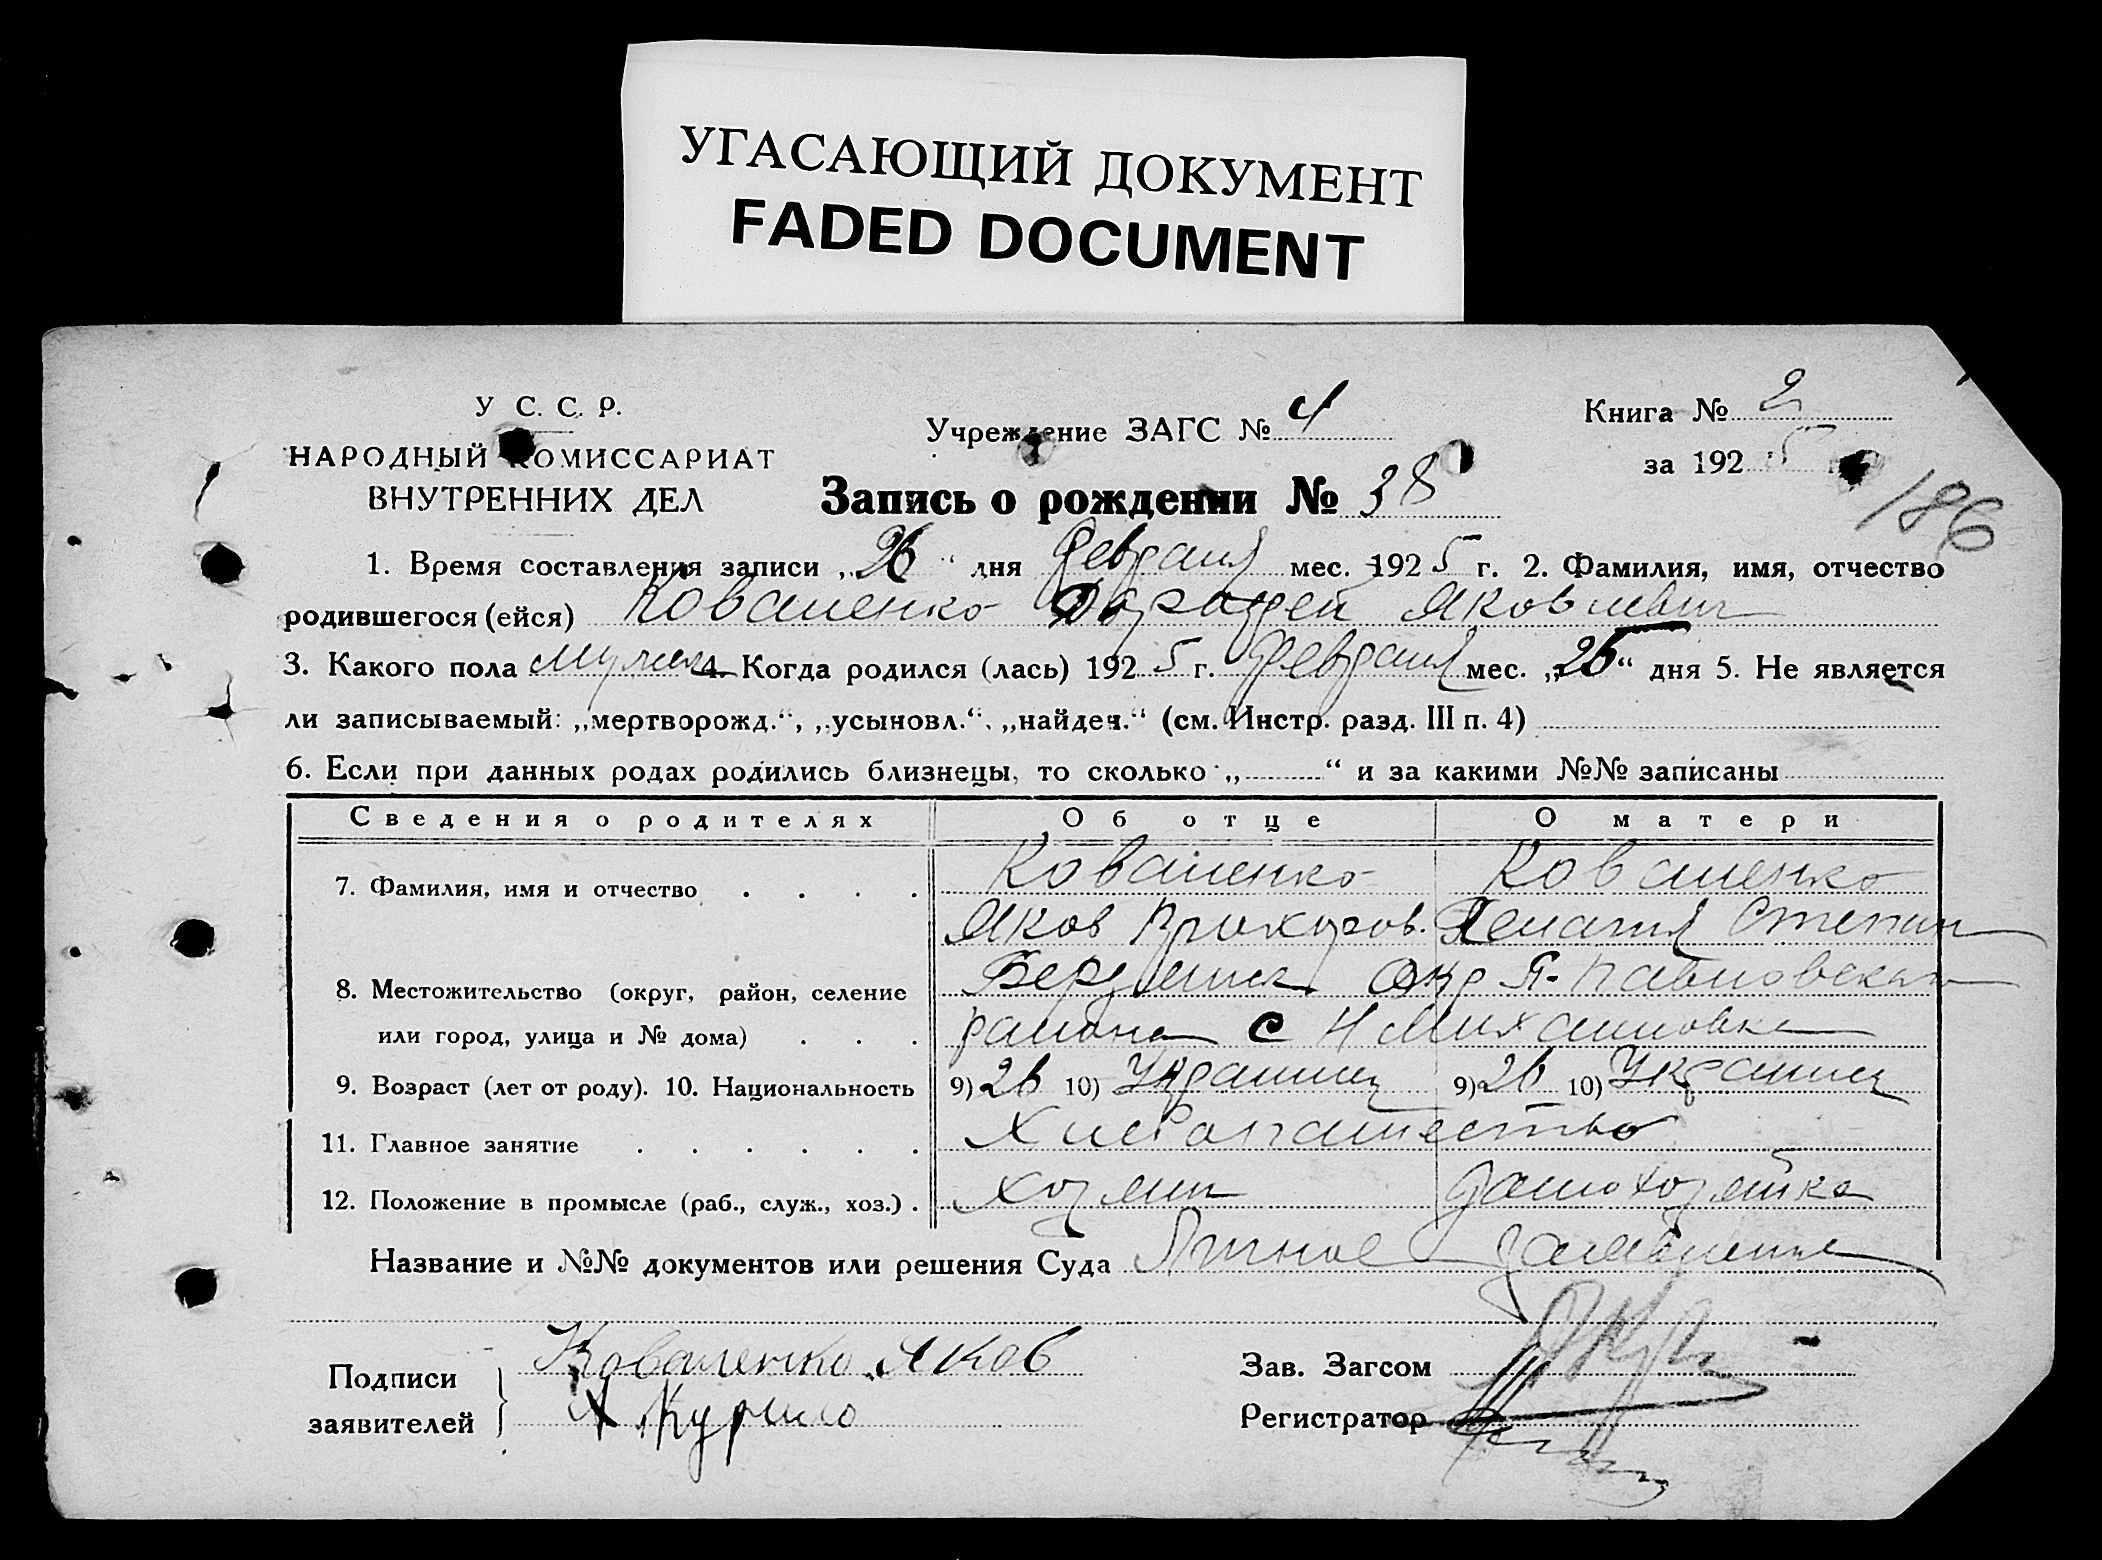 УГАСАЮЩИЙ ДОКУМЕНТ
FADED DOCUMENT
У. С. С. Р.
НАРОДНЫЙ КОМИССАРИАТ
ВНУТРЕННИХ ДЕЛ
Учреждение ЗАГС № 4
Книга № 2
за 1925
Запись о рождении № 38
186
1. Время составления записи „26“ дня Февраля мес. 1925 г. 2. Фамилия, имя, отчество
родившегося (ейся) Коваленко Яковлевич
3. Какого пола мужск 4. Когда родился (лась) 1925 г. Февраля мес. „25“ дня 5. Не является
ли записываемый: „мертворожд.“, „усыновл.“, „найден.“ (см. Инстр. разд. III п. 4)
6. Если при данных родах родились близнецы, то сколько „ “ и за какими №№ записаны
Сведения о родителях Об отце О матери
7. Фамилия, имя и отчество Коваленко Коваленко
Яков Прохоров. Степан
8. Местожительство (округ, район, селение Бердянск Окр П-Павловского
или город, улица и № дома) района с Н Михайловка
9. Возраст (лет от роду). 10. Национальность 9) 26 10) Украинец 9) 26 10) Украинец
11. Главное занятие Хлебопашество
12. Положение в промысле (раб., служ., хоз.) хозяин домохозяйка
Название и №№ документов или решения Суда Личное заявление
Подписи заявителей Коваленко Яков
Зав. Загсом
Регистратор